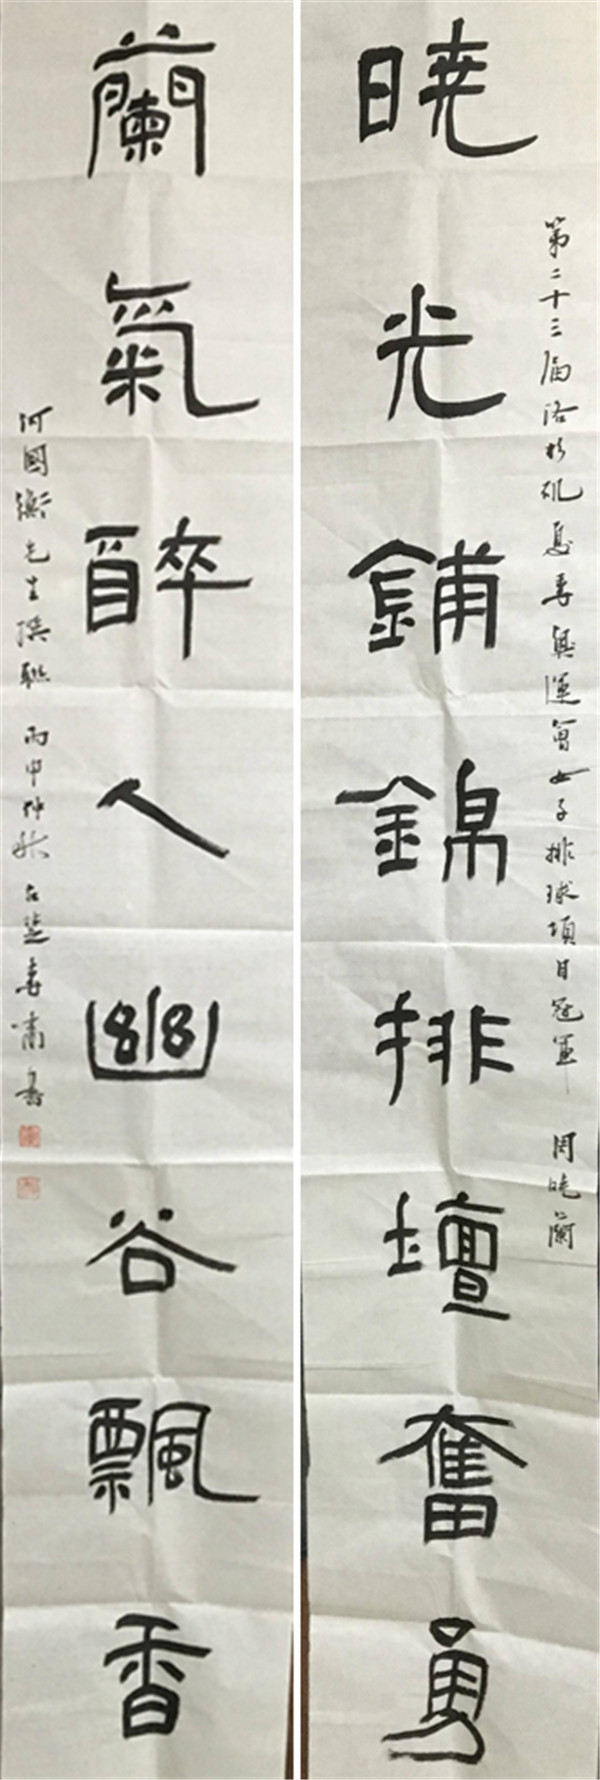 第二十三届洛杉矶夏季奥運會女子排球項目冠軍 周曉蘭
曉光鋪錦排壇奮勇
蘭氣醉人幽谷飄香
何國衡先生撰聯 丙申仲秋 古楚春嘯書